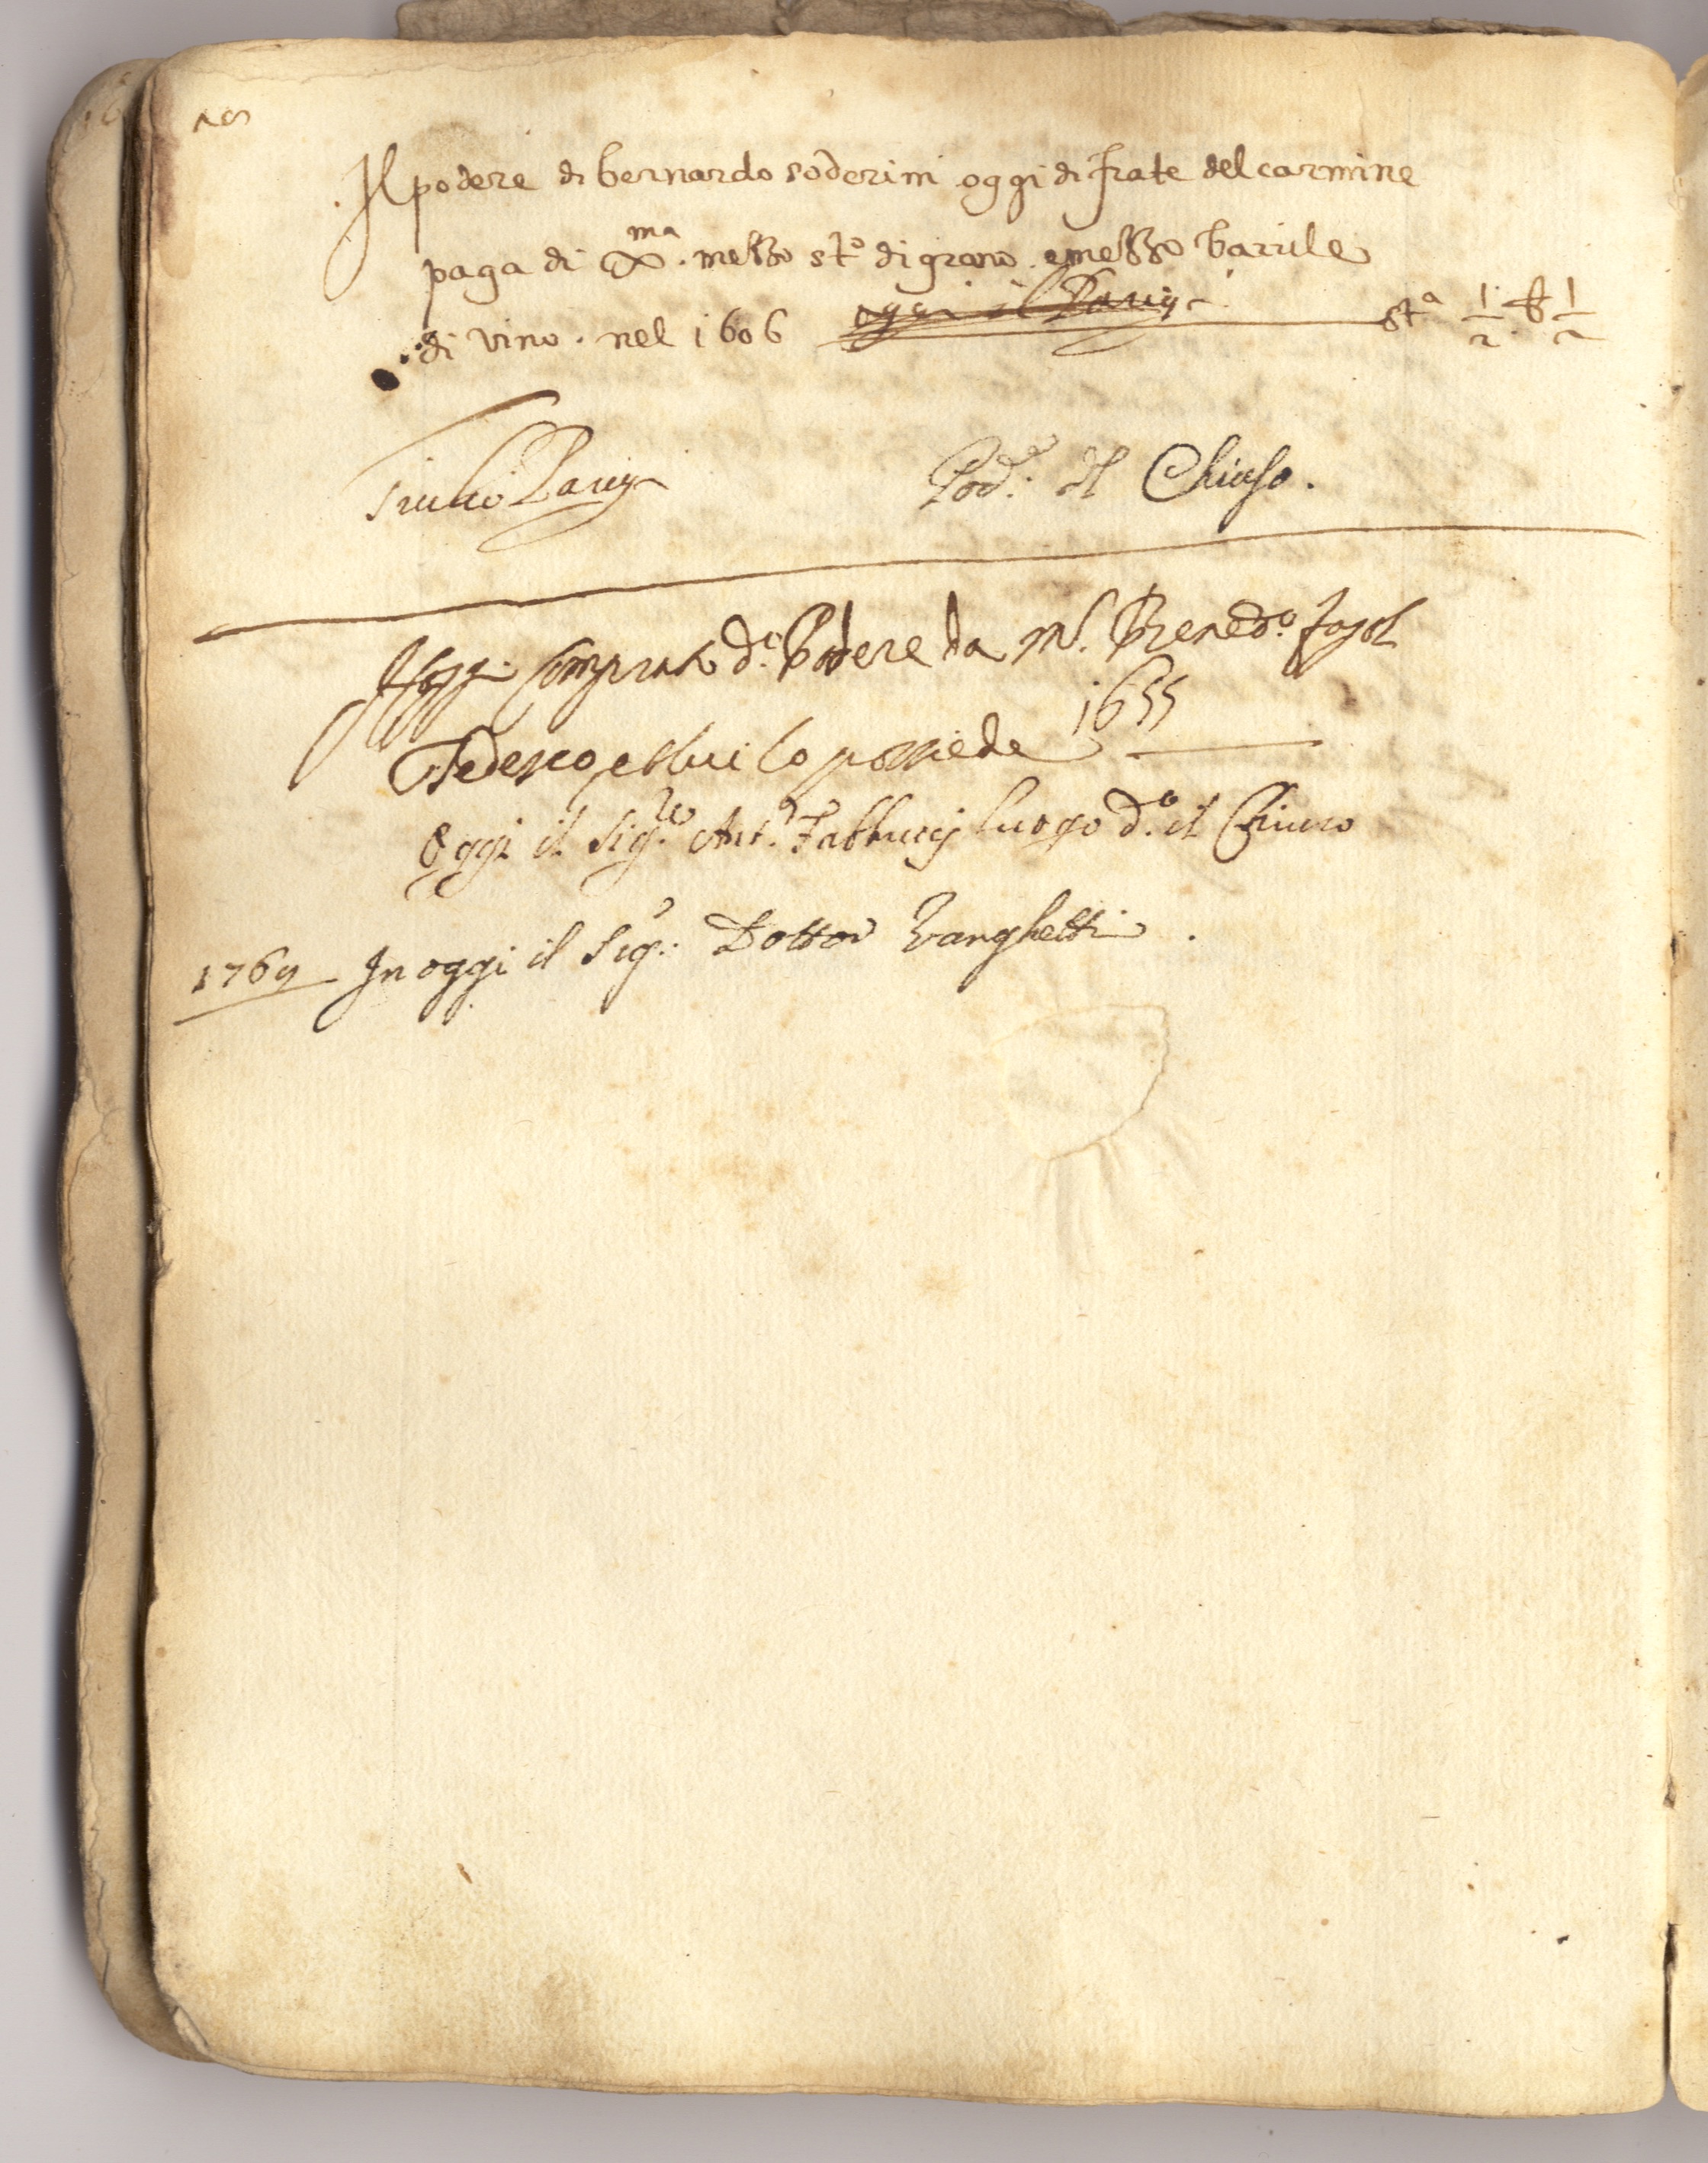 Il podere di bernardo soderini oggi di frate del carmine
paga di Xma. mezzo sto di grano. e mezzo barile
di vino. nel 1606 oggi il sta 1/2 b 1/2
Pod.e il Chiuso.
Hoggi d.o Podere da M. Bened.o
Tedesco e lui lo possiede 1655
Oggi il Sig.re Ant.o Fabbrucij luogo d.o il Chiuso
1769 In oggi il Sig.r Dottor Vanghetti.